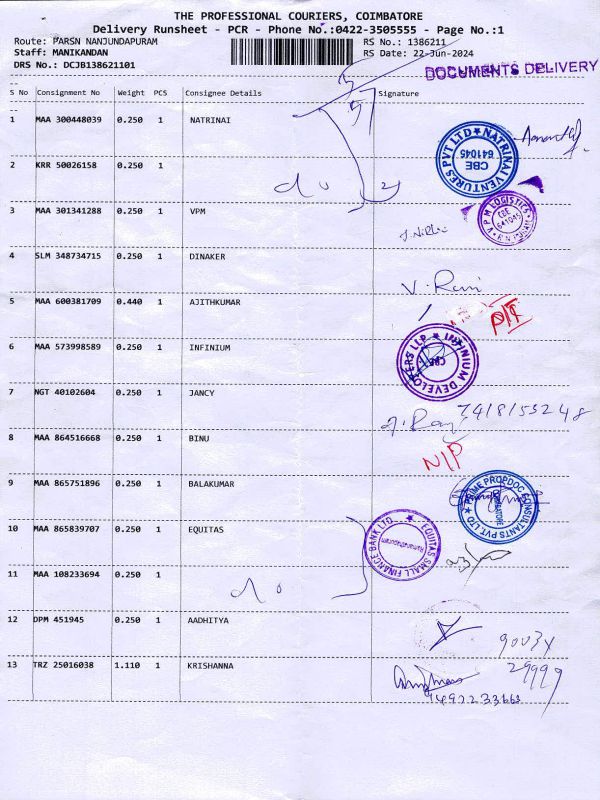 THE PROFESSIONAL COURIERS, COIMBATORE
Delivery Runsheet - PCR - Phone No.:0422-3505555 - Page No.:1
Route: PARSN NANJUNDAPURAM RS No.: 1386211
Staff: MANIKANDAN RS Date: 22-Jun-2024
DRS No.: DCJB138621101
DOCUMENTS DELIVERY
S No Consignment No Weight PCS Consignee Details Signature
1 MAA 300448039 0.250 1 NATRINAI
NATRINAI VENTURES PVT LTD CBE 641045
2 KRR 50026158 0.250 1
do
3 MAA 301341288 0.250 1 VPM
VPM LOGISTICS CBE 641045
4 SLM 348734715 0.250 1 DINAKER
V. Rani
5 MAA 600381709 0.440 1 AJITHKUMAR
6 MAA 573998589 0.250 1 INFINIUM
INFINIUM DEVELOPERS LLP CBE
7 NGT 40102604 0.250 1 JANCY
7418153248
8 MAA 864516668 0.250 1 BINU
N/P
9 MAA 865751896 0.250 1 BALAKUMAR
PRIME PROPDOC CONSULTANTS PVT LTD COIMBATORE
10 MAA 865839707 0.250 1 EQUITAS
EQUITAS SMALL FINANCE BANK LTD. Ramanathapuram
11 MAA 108233694 0.250 1
do
12 DPM 451945 0.250 1 AADHITYA
13 TRZ 25016038 1.110 1 KRISHANNA
29999